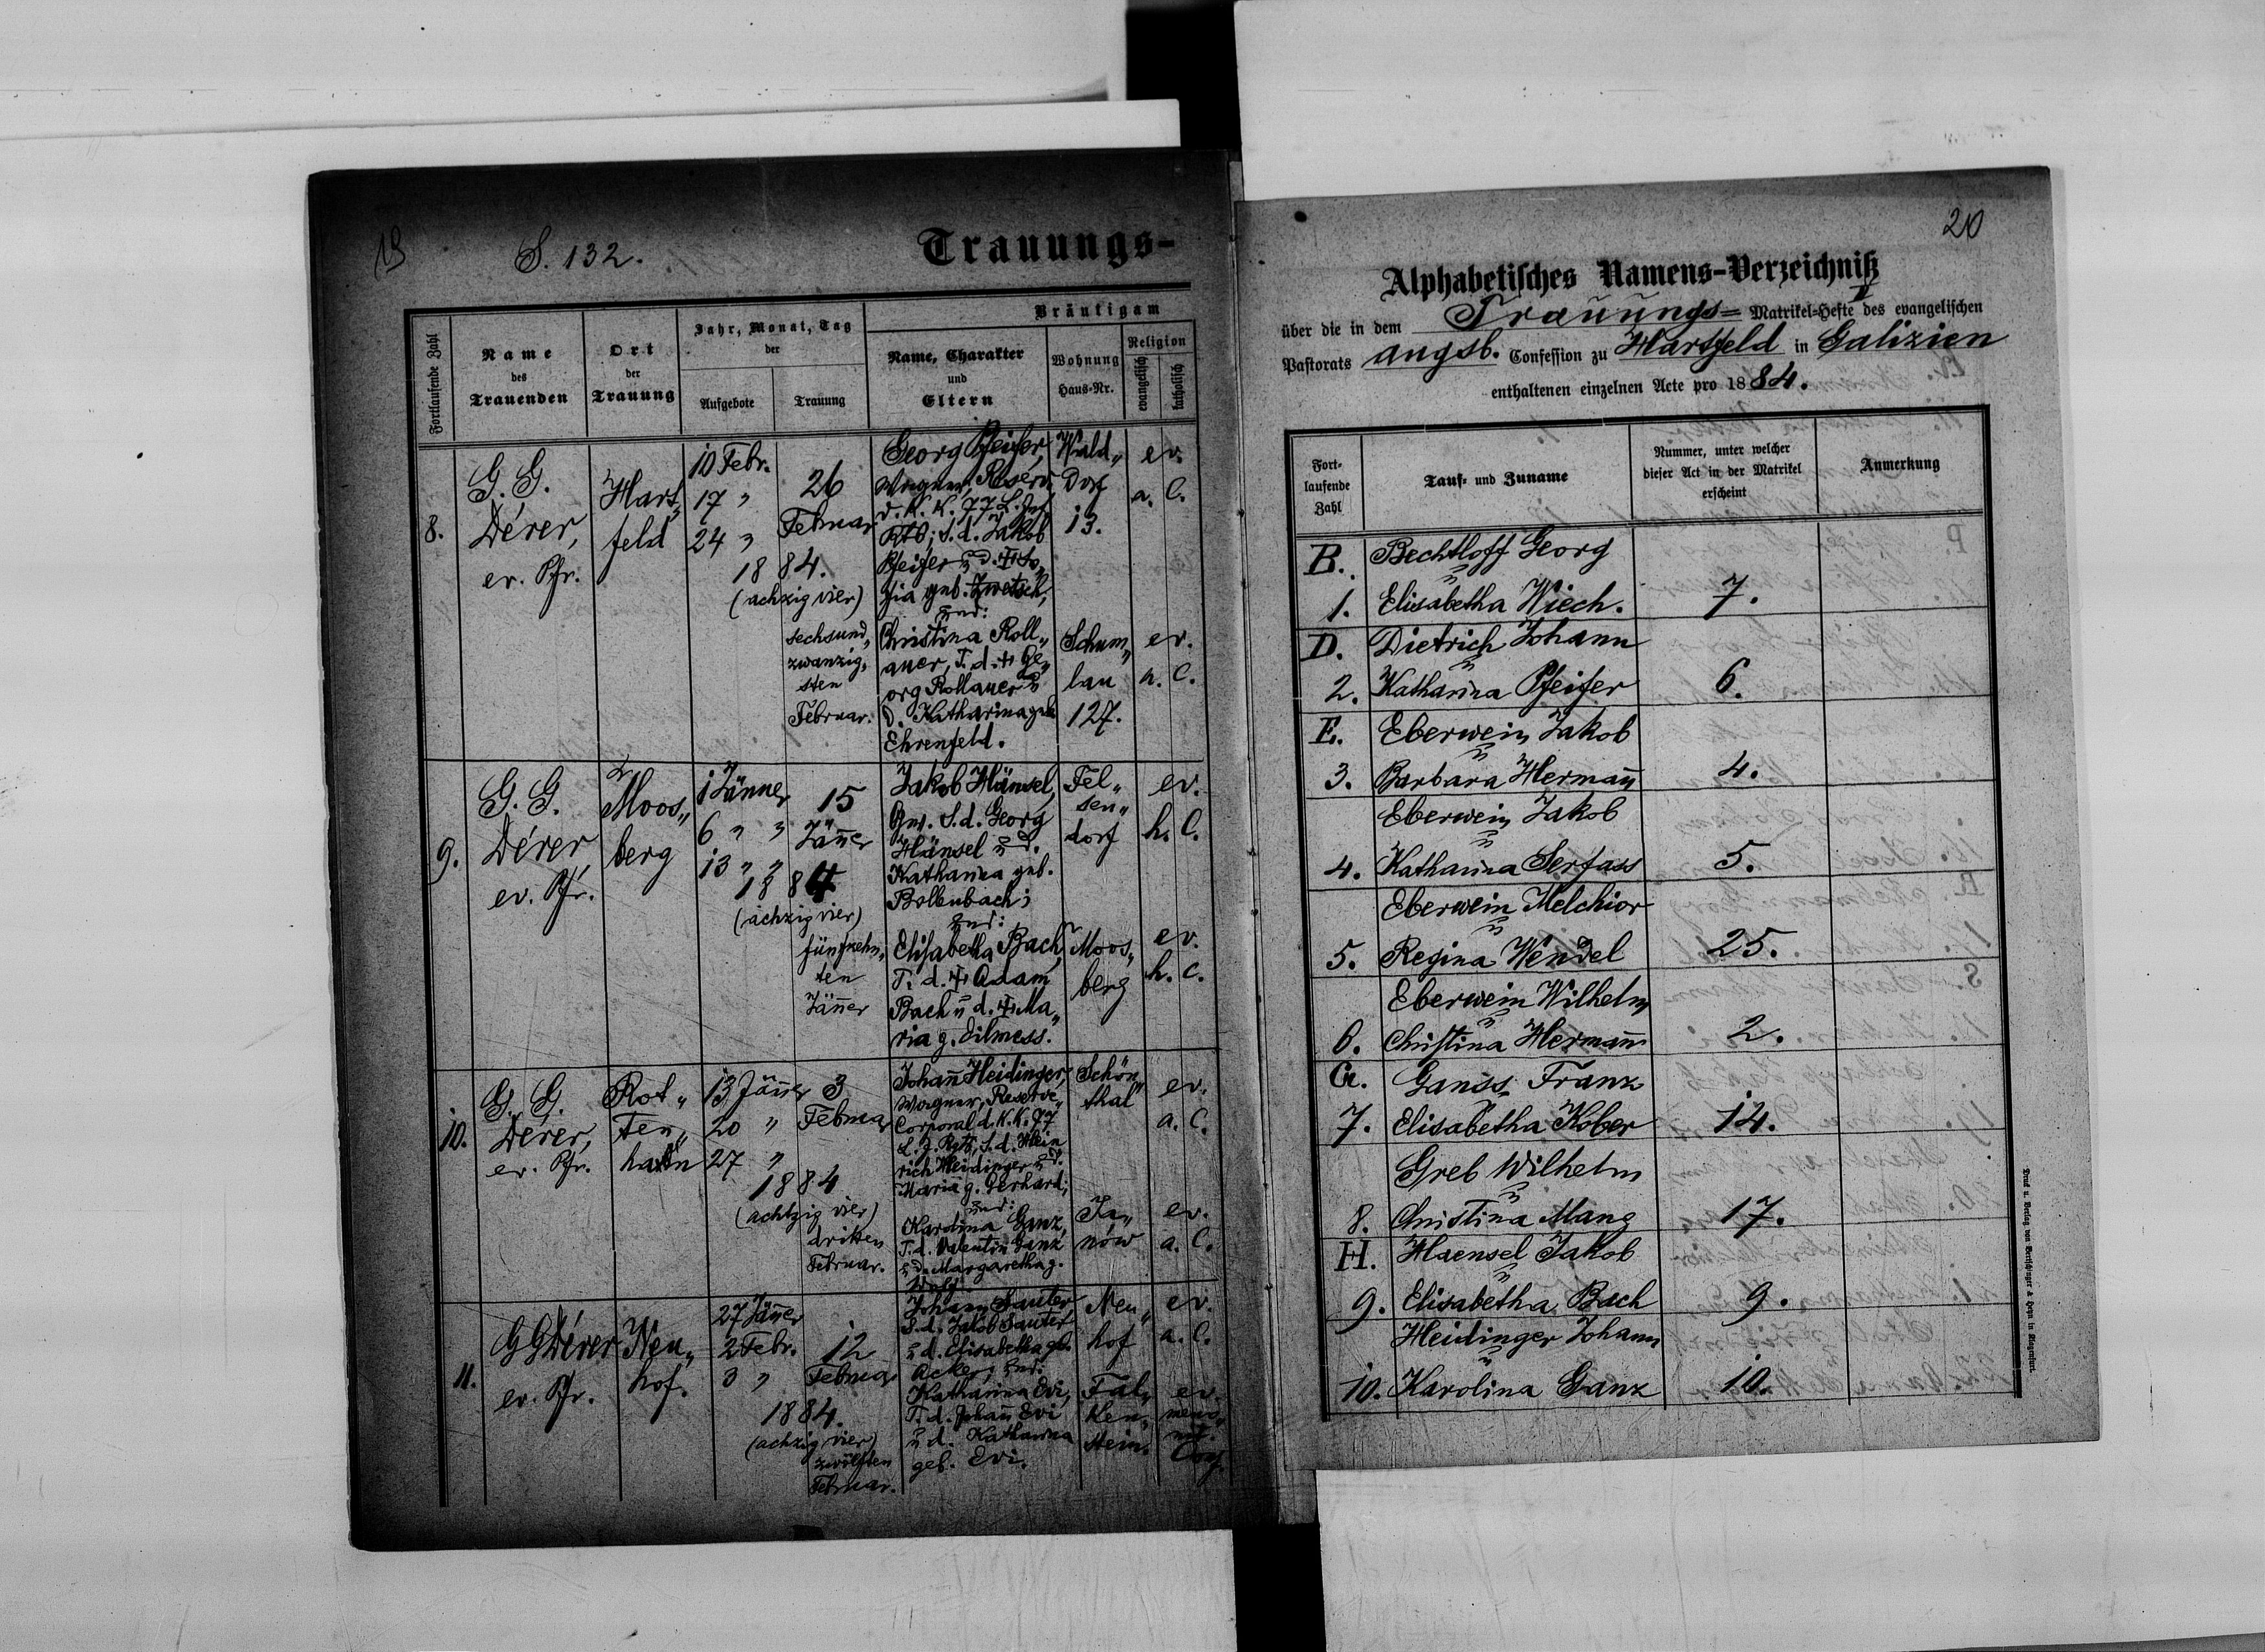 19
S. 132.
Trauungs-
Fortlaufende Zahl
Name
des
Trauenden
Ort
der
Trauung
Jahr, Monat, Tag
der
Aufgebote
Trauung
Bräutigam
Name, Charakter
und
Eltern
Wohnung
Haus-Nr.
Religion
evangelisch
katholisch
8.
G. G.
Dérer,
ev. Pfr.
Hart„
feld
10 Febr.
17 "
24 "
1884.
(achzig vier)
26
Februar
sechsund„
zwanzig„
sten
Februar.
Georg Pfeifer,
Wagner, Reserv.
d. K. K. 77 L. Inf.
Rtts; S. d. Jakob
Pfeifer u. d. + So„
fia geb. Zwetsch,
und:
Christina Roll„
auer, T. d. + Ge„
org Rollauer u
d. Katharina geb
Ehrenfeld.
Wald„
dorf
13.
Schum„
lau
127.
ev.
a. C.
ev.
a. C.
9.
G. G.
Dérer,
ev. Pfr.
Moos„
berg
1 Jänner
6 " "
13 " "
1884
(achzig vier)
15
Jäner
fünfzehn„
ten
Jäner
Jakob Hänsel,
Gw. S. d. Georg
Hänsel u d.
Katharina geb.
Bollenbach;
und:
Elisabetha Bach,
T. d. + Adam
Bach u d. + Ma„
ria g. Dilmess.
Fel„
sen„
dorf
Moos„
berg
ev.
h. C.
ev.
h. C.
10.
G. G.
Dérer,
ev. Pfr.
Rot„
ten„
hahn
13 Jäner
20 "
27 "
1884
(achtzig vier)
3
Februar
dritten
Februar.
Johann Heidinger,
Wagner, Reserve„
Corporal d. K. K. 77
L. I. Rgts, S. d. Hein
rich Heidinger u d.
Maria g. Gerhard;
und:
Karolina Ganz,
T. d. Valentin Ganz
u d. Margaretha g.
Schön„
thal
Ja„
nów
ev.
a. C.
ev.
a. C.
11.
G G Dérer
ev. Pfr.
Neu„
hof.
27 Jäner
2 Febr.
3 "
1884.
(achzig vier)
12
Februar
zwölften
Februar.
Johann Sauter,
S. d. Jakob Sauter
u d. Elisabetha geb.
Acker; und:
Katharina Ewi,
T. d. Johann Ewi
u d. Katharina
geb. Ewi.
Neu„
hof
Fal„
ken„
stein.
ev.
a. C.
ev.
meno„
nit.
Conf.
20
Alphabetisches Namens-Verzeichniß
über die in dem Trauungs= Matrikel-Hefte des evangelischen
Pastorats augsb. Confession zu Hartfeld in Galizien
enthaltenen einzelnen Acte pro 1884.
Fort-
laufende
Zahl
Tauf- und Zuname
Nummer, unter welcher
dieser Act in der Matrikel
erscheint
Anmerkung
B. Bechtloff Georg
u
1. Elisabetha Wiech. 7.
D. Dietrich Johann
u
2. Katharina Pfeifer 6.
E. Eberwein Jakob
u
3. Barbara Hermann 4.
Eberwein Jakob
u
4. Katharina Serfass 5.
Eberwein Melchior
u
5. Regina Wendel 25.
Eberwein Wilhelm
u
6. Christina Hermann 2.
G. Ganss Franz
u
7. Elisabetha Kober 14.
Greb Wilhelm
u
8. Christina Mang 17.
H. Haensel Jakob
u
9. Elisabetha Bach 9.
Heidinger Johann
u
10. Karolina Ganz 10.
Druck u. Verlag von Bertschinger & Heyn in Klagenfurt.